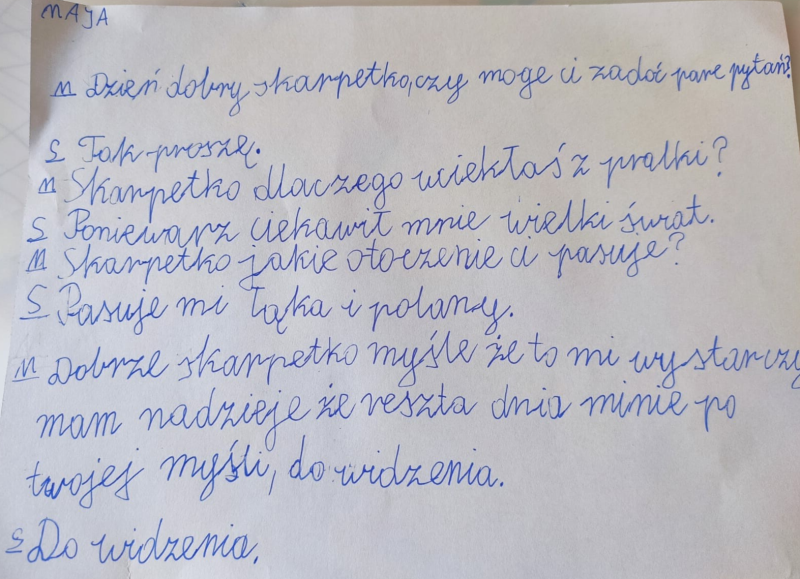 MAJA
M Dzień dobry skarpetko, czy moge ci zadać pare pytań?
S Tak proszę.
M Skarpetko dlaczego uciekłaś z pralki?
S Poniewarz ciekawił mnie wielki świat.
M Skarpetko jakie otoczenie ci pasuje?
S Pasuje mi łąka i polany.
M Dobrze skarpetko myśle że to mi wystarczy
mam nadzieje że reszta dnia minie po
twojej myśli, do widzenia.
S Do widzenia.